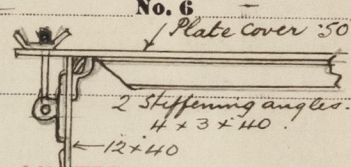 No. 6
Plate cover .50
2 Stiffening angles.
4 x 3 x .40.
12 x .40